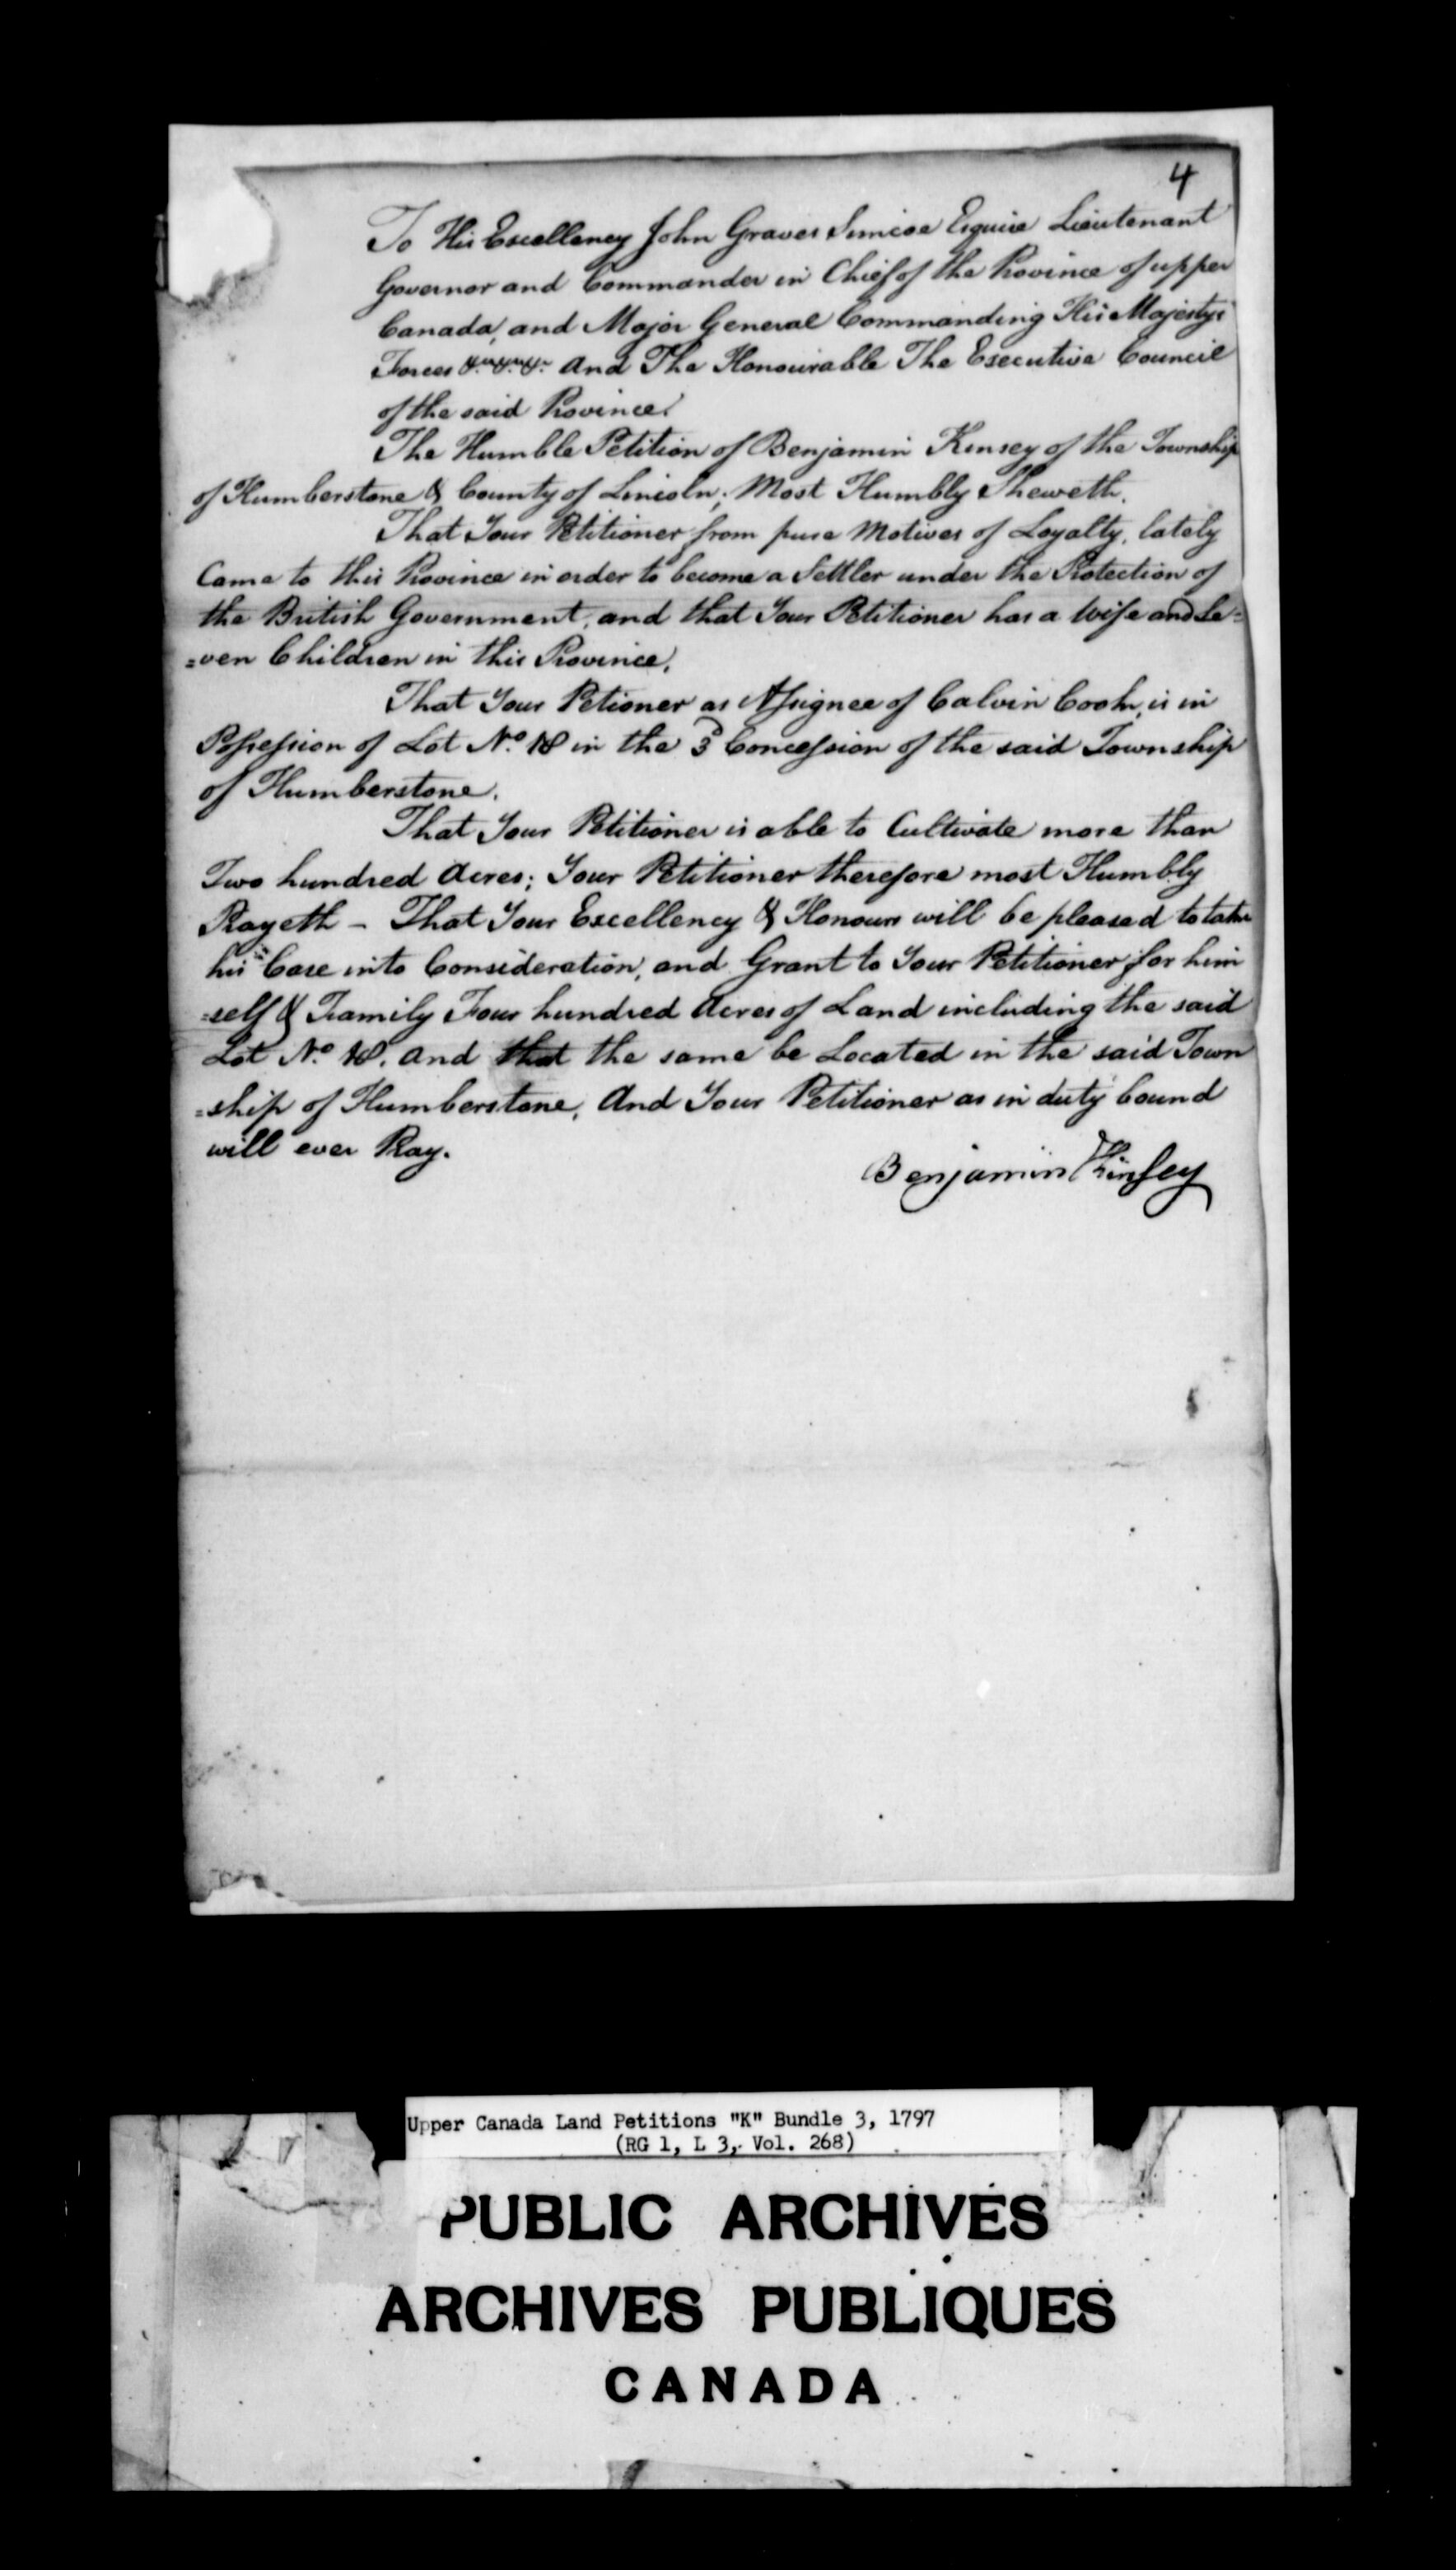 4
To His Excellency John Graves Simcoe Esquire Lieutenant
Governor and Commander in Chief of the Province of upper
Canada, and Major General Commanding His Majestys
Forces &c &c &c And The Honourable The Executive Council
of the said Province.
The Humble Petition of Benjamin Kinsey of the Township
of Humberstone & County of Lincoln; Most Humbly Sheweth.
That Your Petitioner from pure Motives of Loyalty, lately
Came to this Province in order to become a Settler under the Protection of
the British Government, and that Your Petitioner has a Wife and Se=
=ven Children in this Province.
That Your Petioner as Assignee of Calvin Cook, is in
Possession of Lot No. 18 in the 3d Concession of the said Township
of Humberstone.
That Your Petitioner is able to Cultivate more than
Two hundred Acres; Your Petitioner therefore most Humbly
Prayeth - That Your Excellency & Honours will be pleased to take
his Case into Consideration, and Grant to Your Petitioner for him
=self & Family Four hundred Acres of Land including the said
Lot No. 18. And that the same be Located in the said Town
=ship of Humberstone, And Your Petitioner as in duty bound
will ever Pray.
Benjamin Kinsey
Upper Canada Land Petitions "K" Bundle 3, 1797
(RG 1, L 3, Vol. 268)
PUBLIC ARCHIVES
ARCHIVES PUBLIQUES
CANADA